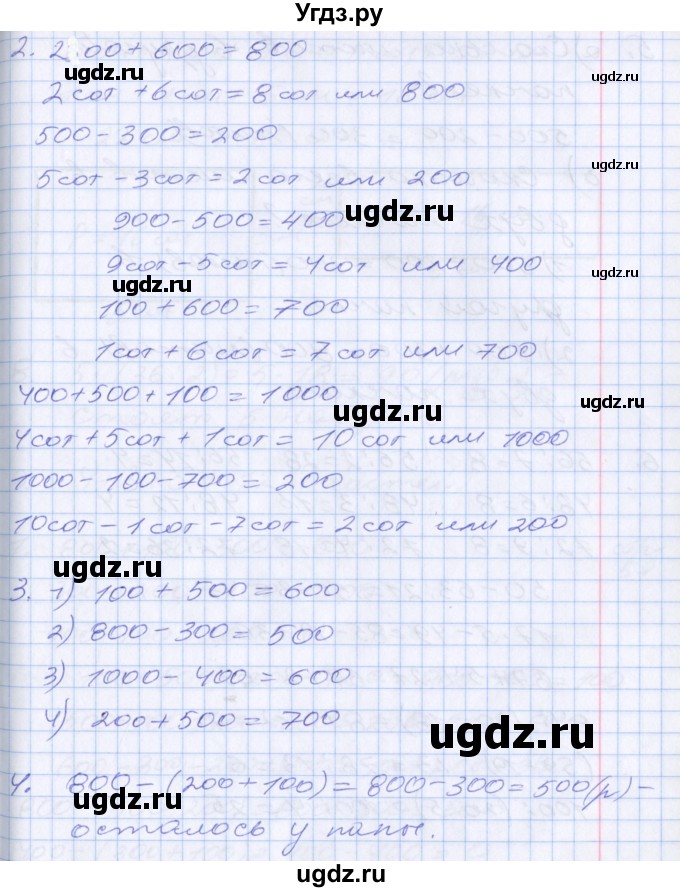 Угдз.ру
2. 2.00 + 600 = 800
ugdz.ru
ugdz.ru
2 сот + 6 сот = 8 сот или 800
500 - 300 = 200
ugdz.ru
5 сот - 3 сот = 2 сот или 200
900 - 500 = 400
ugdz.ru
9 сот - 5 сот = 4 сот или 400
ugdz.ru
ugdz.ru
100 + 600 = 700
1 сот + 6 сот = 7 сот или 700
400 + 500 + 100 = 1000
ugdz.ru
ugdz.ru
4 сот + 5 сот + 1 сот = 10 сот или 1000
1000 - 100 - 700 = 200
10 сот - 1 сот - 7 сот = 2 сот или 200
ugdz.ru
3. 1) 100 + 500 = 600
2) 800 - 300 = 500
3) 1000 - 400 = 600
4) 200 + 500 = 700
ugdz.ru
4. 800 - (200 + 100) = 800 - 300 = 500 (р) -
ugdz.ru
осталось у папы.
ugdz.ru